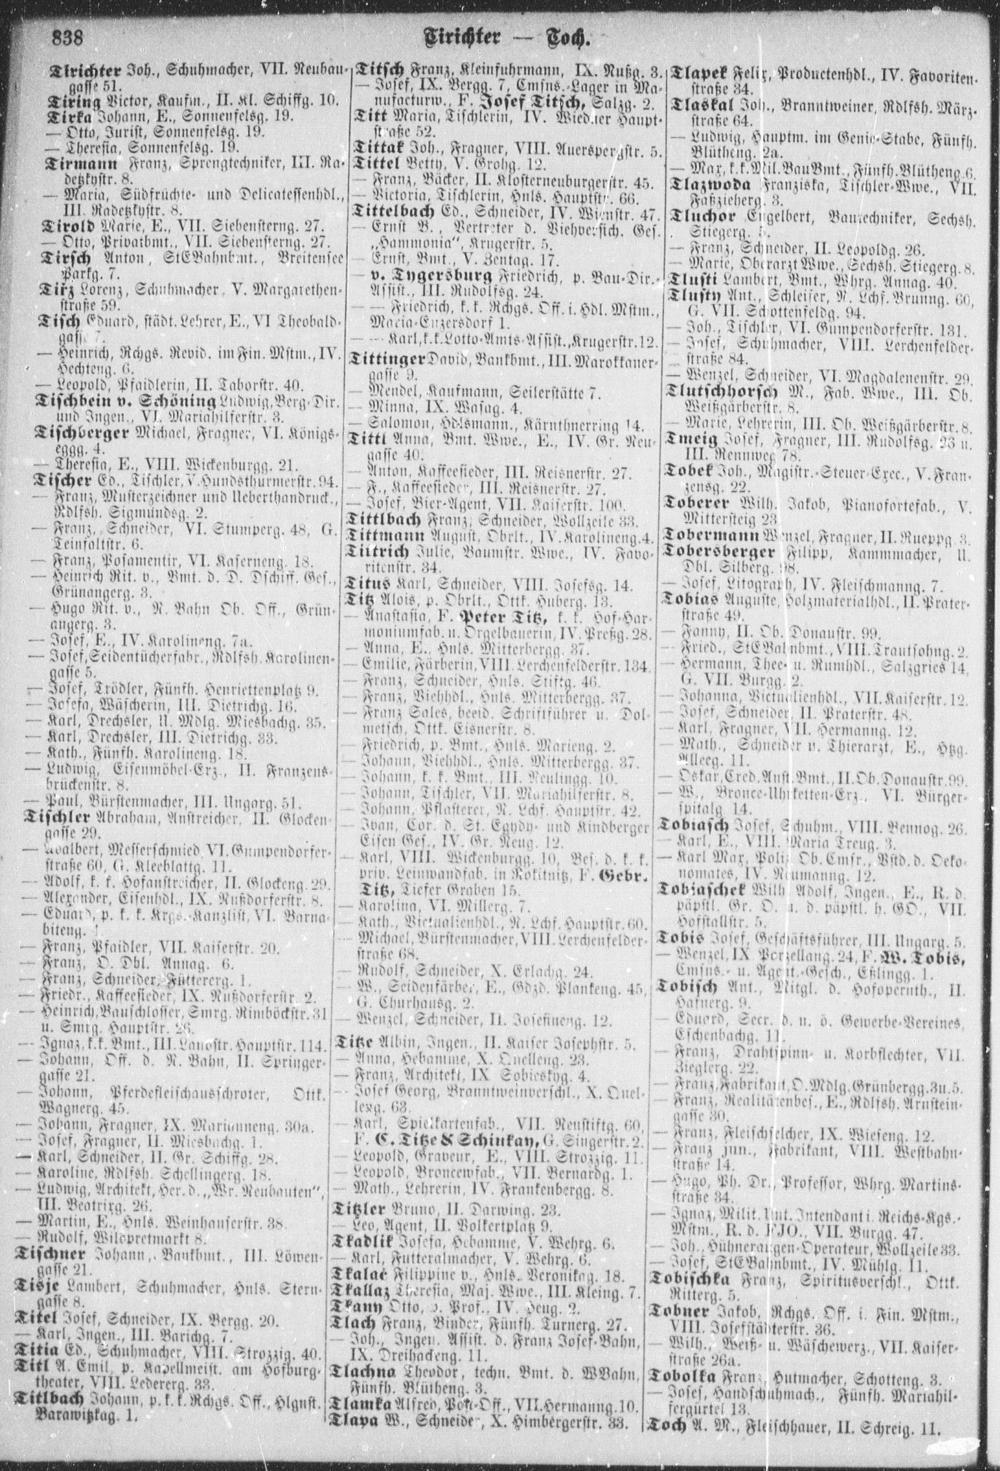 838
Tirichter — Toch.
Tirichter Joh., Schuhmacher, VII. Neubau-
gasse 51.
Tiring Victor, Kaufm., II. Kl. Schiffg. 10.
Tirka Johann, E., Sonnenfelsg. 19.
— Otto, Jurist, Sonnenfelsg. 19.
— Theresia, Sonnenfelsg. 19.
Tirmann Franz, Sprengtechniker, III. Ra-
detzkystr. 8.
— Maria, Südfrüchte- und Delicatessenhdl.,
III. Radetzkystr. 8.
Tirold Marie, E., VII. Siebensterng. 27.
— Otto, Privatbmt., VII. Siebensterng. 27.
Tirsch Anton, StEBahnbmt., Breitensee
Parkg. 7.
Tirz Lorenz, Schuhmacher, V. Margarethen-
straße 59.
Tisch Eduard, städt. Lehrer, E., VI Theobald-
gasse 7.
— Heinrich, Rchgs. Revid. im Fin. Mstm., IV.
Hechteng. 6.
— Leopold, Pfaidlerin, II. Taborstr. 40.
Tischbein v. Schöning Ludwig, Berg-Dir.
und Ingen., VI. Mariahilferstr. 3.
Tischberger Michael, Fragner, VI. Königs-
eggg. 4.
— Theresia, E., VIII. Wickenburgg. 21.
Tischer Ed., Tischler, V. Hundsthurmerstr. 94.
— Franz, Musterzeichner und Ueberthandruck.,
Rdlfsh. Sigmundsg. 2.
— Franz, Schneider, VI. Stumperg. 48, G.
Teinfaltstr. 6.
— Franz, Posamentir, VI. Kaserneng. 18.
— Heinrich Rit. v., Bmt. d. D. Dschiff. Ges.,
Grünangerg. 3.
— Hugo Rit. v., N. Bahn Ob. Off., Grün-
angerg. 3.
— Josef, E., IV. Karolineng. 7a.
— Josef, Seidentücherfabr., Rdlfsh. Karolinen-
gasse 5.
— Josef, Trödler, Fünfh. Henriettenplatz 9.
— Josefa, Wäscherin, III. Dietrichg. 16.
— Karl, Drechsler, U. Mdlg. Miesbachg. 35.
— Karl, Drechsler, III. Dietrichg. 33.
— Kath., Fünfh. Karolineng. 18.
— Ludwig, Eisenmöbel-Erz., II. Franzens-
brückenstr. 8.
— Paul, Bürstenmacher, III. Ungarg. 51.
Tischler Abraham, Anstreicher, II. Glocken-
gasse 29.
— Adalbert, Messerschmied VI. Gumpendorfer-
straße 60, G. Kleeblattg. 11.
— Adolf, k. k. Hofanstreicher, II. Glockeng. 29.
— Alexander, Eisenhdl., IX. Nußdorferstr. 8.
— Eduard, p. k. k. Krgs.-Kanzlist, VI. Barna-
biteng.
— Franz, Pfaidler, VII. Kaiserstr. 20.
— Franz, O. Dbl. Annag. 6.
— Franz, Schneider, Fütterer g. 1.
— Friedr., Kaffeesieder, IX. Nußdorferstr. 2.
— Heinrich, Bauschlosser, Smrg. Rimböckstr. 31
u. Smrg. Hauptstr. 26.
— Ignaz, k.k. Bmt., III. Landstr. Hauptstr. 114.
— Johann, Off. d. N. Bahn, II. Springer-
gasse 21.
— Johann, Pferdefleischausschroter, Ottk.
Wagnerg. 45.
— Johann, Fragner, IX. Marianneng. 30a.
— Josef, Fragner, II. Miesbachg. 1.
— Karl, Schneider, II. Gr. Schiffg. 28.
— Karoline, Rdlfsh. Schellingerg. 18.
— Ludwig, Architekt, Her. d. „Wr. Neubauten",
III. Beatrixg. 26.
— Martin, E., Hnls. Weinhauserstr. 38.
— Rudolf, Wildpretmarkt 8.
Tischner Johann, Bankbmt., III. Löwen-
gasse 21.
Tisje Lambert, Schuhmacher, Hnls. Stern-
gasse 8.
Titel Josef, Schneider, IX. Bergg. 20.
— Karl, Ingen., III. Barichg. 7.
Titia Ed., Schuhmacher, VIII. Strozzig. 40.
Titl A. Emil, p. Kapellmeist. am Hofburg-
theater, VIII. Ledererg. 33.
Titlbach Johann, p.k.k. Rchgs. Off., Hlgnst.
Barawitzkag. 1.
Titsch Franz, Kleinfuhrmann, IX. Nußg. 3.
— Josef, IX. Bergg. 7, Emsns.-Lager in Ma-
nufacturw., F. Josef Titsch, Salzg. 2.
Titt Maria, Tischlerin, IV. Wiedner Haupt-
straße 52.
Tittak Joh., Fragner, VIII. Auerspergstr. 5.
Tittel Betty, V. Grohg. 12.
— Franz, Bäcker, II. Klosterneuburgerstr. 45.
— Victoria, Tischlerin, Hnls. Hauptstr. 66.
Tittelbach Ed., Schneider, IV. Wienstr. 47.
— Ernst B., Vertreter d. Viehversich. Ges.
„Hammonia", Krugerstr. 5.
— Ernst, Bmt., V. Zentag. 17.
— v. Tygersburg Friedrich, p. Bau-Dir.-
Assist., III. Rudolfsg. 24.
— — Friedrich, k.k. Rchgs. Off. i. Hdl. Mstm.,
Maria-Enzersdorf 1.
— — Karl, k.k. Lotto-Amts-Assist., Krugerstr. 12.
Tittinger David, Bankbmt., III. Marokkaner-
gasse 9.
— Mendel, Kaufmann, Seilerstätte 7.
— Minna, IX. Wasag. 4.
— Salomon, Hdlsmann., Kärnthnerring 14.
Tittl Anna, Bmt. Wwe., E., IV. Gr. Neu-
gasse 40.
— Anton, Kaffeesieder, III. Reisnerstr. 27.
— F., Kaffeesieder, III. Reisnerstr. 27.
— Josef, Bier-Agent, VII. Kaiserstr. 100.
Tittlbach Franz, Schneider, Wollzeile 33.
Tittmann August, Obrlt., IV. Karolineng. 4.
Tittrich Julie, Baumstr. Wwe., IV. Favo-
ritenstr. 34.
Titus Karl, Schneider, VIII. Josefsg. 14.
Titz Alois, p. Obrlt., Ottk. Huberg. 13.
— Anastasia, F. Peter Titz, k. k. Hof-Har-
moniumfab. u. Orgelbauerin, IV. Preßg. 28.
— Anna, E., Hnls. Mitterbergg. 37.
— Emilie, Färberin, VIII. Lerchenfelderstr. 134.
— Franz, Schneider, Hnls. Stiftg. 46.
— Franz, Viehhdl., Hnls. Mitterbergg. 37.
— Franz Sales, beeid. Schriftführer u. Dol-
metsch, Ottk. Eisnerstr. 8.
— Friedrich, p. Bmt., Hnls. Marieng. 2.
— Johann, Viehhdl., Hnls. Mitterbergg. 37.
— Johann, k. k. Bmt., III. Reulingg. 10.
— Johann, Tischler, VII. Mariahilferstr. 8.
— Johann, Pflasterer, N. Lchf. Hauptstr. 42.
— Ivan, Cor. d. St. Egydy- und Kindberger
Eisen Ges., IV. Gr. Neug. 12.
— Karl, VIII. Wickenburgg. 10, Bes. d. k. k.
priv. Leinwandfab. in Rokitnitz, F. Gebr.
Titz, Tiefer Graben 15.
— Karolina, VI. Millerg. 7.
— Kath., Victualienhdl., N. Lchf. Hauptstr. 60.
— Michael, Bürstenmacher, VIII. Lerchenfelder-
straße 68.
— Rudolf, Schneider, X. Erlachg. 24.
— W., Seidenfärber, E., Gdzd. Plankeng. 45,
G. Churhausg. 2.
— Wenzel, Schneider, II. Josefineng. 12.
Titze Albin, Ingen., II. Kaiser Josephstr. 5.
— Anna, Hebamme, X. Quelleng. 23.
— Franz, Architekt, IX Sobieskyg. 4.
— Josef Georg, Branntweinverschl., X. Quel-
leng. 63.
— Karl, Spielkartenfab., VII. Neustiftg. 60,
F. C. Titze & Schinkay, G. Singerstr. 2.
— Leopold, Graveur, E., VIII. Strozzig. 11.
— Leopold, Broncewfab., VII. Bernardg. 1.
— Math., Lehrerin, IV. Frankenbergg. 8.
Titzler Bruno, II. Darwing. 23.
— Leo, Agent, II. Volkertplatz 9.
Tkadlik Josefa, Hebamme, V. Wehrg. 6.
— Karl, Futteralmacher, V. Wehrg. 6.
Tkalač Filippine v., Hnls. Veronikag. 18.
Tkallaz Theresia, Maj. Wwe., III. Kleing. 7.
Tkany Otto, Prof., IV. Heug. 2.
Tlach Franz, Binder, Fünfh. Turnerg. 27.
— Joh., Ingen. Assist. d. Franz Josef-Bahn,
IX. Dreihackeng. 11.
Tlachna Theodor, techn. Bmt. d. WBahn,
Fünfh. Blütheng. 3.
Tlamka Alfred, Post-Off., VII. Hermanng. 10.
Tlapa W., Schneider, X. Himbergerstr. 33.
Tlapek Felix, Productenhdl., IV. Favoriten-
straße 34.
Tlaskal Joh., Branntweiner, Rdlfsh. März-
straße 64.
— Ludwig, Hauptm. im Genie-Stabe, Fünfh.
Blütheng. 2a.
— Max, k.k. Mil. BauBmt., Fünfh. Blütheng 6.
Tlazwoda Franziska, Tischler-Wwe., VII.
Faßzieherg. 3.
Tluchor Engelbert, Bautechniker, Sechsh.
Stiegerg. 5.
— Franz, Schneider, II. Leopoldg. 26.
— Marie, Oberarzt Wwe., Sechsh. Stiegerg. 8.
Tlusti Lambert, Bmt., Whrg. Annag. 40.
Tlusty Ant., Schleifer, N. Lchf. Brunng. 60,
G. VII. Schottenfeldg. 94.
— Joh., Tischler, VI. Gumpendorferstr. 131.
— Josef, Schuhmacher, VIII. Lerchenfelder-
straße 84.
— Wenzel, Schneider, VI. Magdalenenstr. 29.
Tlutschhorsch M., Fab. Wwe., III. Ob.
Weißgärberstr. 8.
— Marie, Lehrerin, III. Ob. Weißgärberstr. 8.
Tmeig Josef, Fragner, III. Rudolfsg. 23 u.
III. Rennweg 78.
Tobek Joh., Magistr.-Steuer-Exec., V. Fran-
zensg. 22.
Toberer Wilh. Jakob, Pianofortefab., V.
Mittersteig 23
Tobermann Wenzel, Fragner, II. Rueppg. 3.
Tobersberger Filipp, Kammmacher, U.
Dbl. Silberg. 98.
— Josef, Litograph, IV. Fleischmanng. 7.
Tobias Auguste, Holzmaterialhdl., II. Prater-
straße 49.
— Fanny, II. Ob. Donaustr. 99.
— Fried., StEBahnbmt., VIII. Trautsohng. 2.
— Hermann, Thee- u. Rumhdl., Salzgries 14,
G. VII. Burgg. 2.
— Johanna, Victualienhdl., VII. Kaiserstr. 12.
— Josef, Schneider, II. Praterstr. 48.
— Karl, Fragner, VII. Hermanng. 12.
— Math., Schneider v. Thierarzt, E., Hzg.
Alleeg. 11.
— Oskar, Cred. Anst. Bmt., II. Ob. Donaustr. 99.
— W., Bronce-Uhrketten-Erz., VI. Bürger-
spitalg 14.
Tobiasch Josef, Schuhm., VIII. Bennog. 26.
— Karl, E., VIII. Maria Treug. 3.
— Karl Max, Poliz. Ob. Cmsr., Vstd. d. Oeko-
nomates, IV. Neumanng. 12.
Tobiaschek Wilh. Adolf, Ingen., E., R. d.
päpstl. Gr. O. u. d. päpstl. h. GO., VII.
Hofstallstr. 5.
Tobis Josef, Geschäftsführer, III. Ungarg. 5.
— Wenzel, IX Porzellang. 24, F. W. Tobis,
Cmsns.- u. Agent.-Gesch., Eßlingg. 1.
Tobisch Ant., Mitgl. d. Hofopernth., II.
Hafnerg. 9.
— Eduard, Secr. d. n. ö. Gewerbe-Vereines,
Eschenbachg. 11.
— Franz, Drahtspinn- u. Korbflechter, VII.
Zieglerg. 22.
— Franz, Fabrikant, O. Mdlg. Grünbergg. 3 u. 5.
— Franz, Realitätenbes., E., Rdlfsh. Arnstein-
gasse 30.
— Franz, Fleischselcher, IX. Wieseng. 12.
— Franz jun., Fabrikant, VIII. Westbahn-
straße 14.
— Hugo, Ph. Dr., Professor, Whrg. Martins-
straße 34.
— Ignaz, Milit. Unt. Intendant i. Reichs-Kgs.-
Mstm., R. d. FJO., VII. Burgg. 47.
— Joh., Hühneraugen-Operateur, Wollzeile 33.
— Josef, StEBahnbmt., IV. Mühlg. 11.
Tobischka Franz, Spiritusverschl., Ottk.
Ritterg. 5.
Tobner Jakob, Rchgs. Off. i. Fin. Mstm.,
VIII. Josefstädterstr. 36.
— Wilh., Weiß- u. Wäschewerz., VII. Kaiser-
straße 26a.
Tobolka Franz, Hutmacher, Schotteng. 3.
— Josef, Handschuhmach., Fünfh. Mariahil-
fergürtel 13.
Toch A. M., Fleischhauer, II. Schreig. 11.